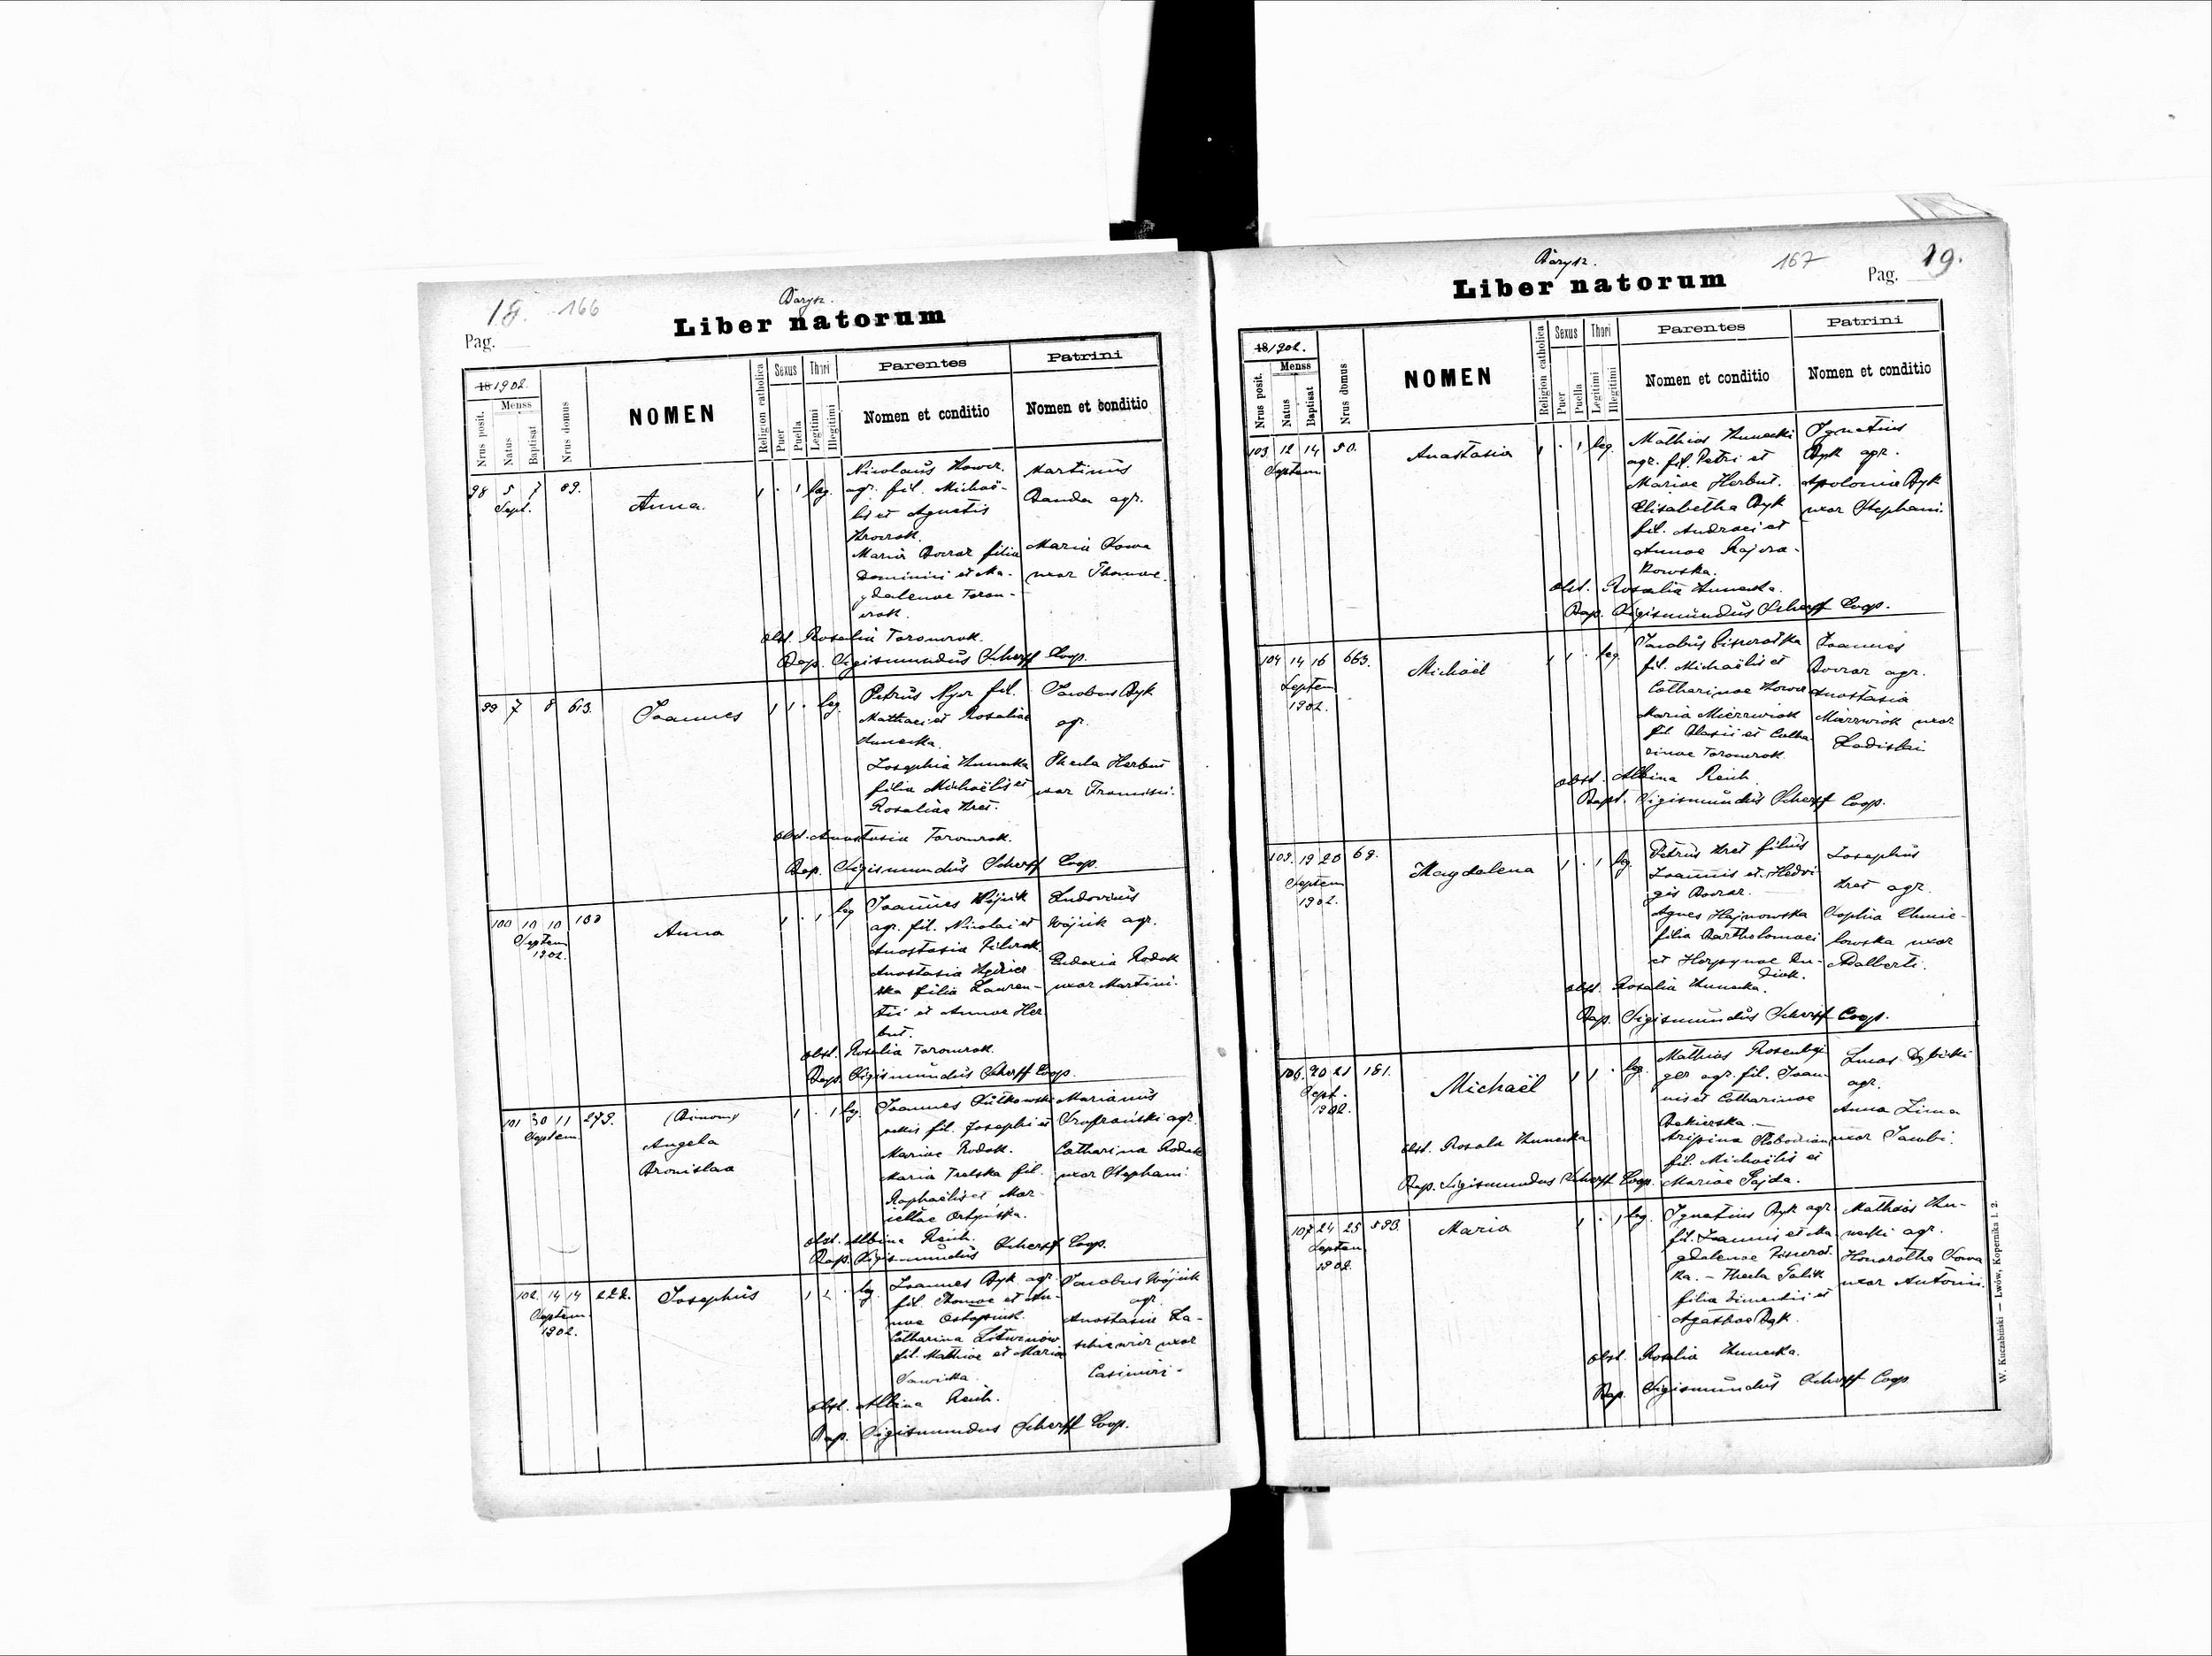 18. 166
Barysz.
Liber natorum
Pag.
18 1902.
Menss
Nrus posit.
Natus
Baptisat
Nrus domus
NOMEN
Religion catholica
Sexus
Puer
Puella
Thori
Legitimi
Illegitimi
Parentes
Nomen et conditio
Patrini
Nomen et conditio
98 5 7 89.
Sept.
Anna.
1 . 1 leg.
Nicolaus
agr. fil. Michaë-
lis et Agnetis
Maria Bocrar filia
Dominici et Ma-
gdalenae Toron-
Martinus
Banda agr.
Maria Sowa
uxor Thomae.
obst. Rosalia
Bap. Sigismundus Scherff Coop.
99 7 8 613.
Joannes
1 1 . leg.
Petrus Nyar fil.
Mathaei et Rosaliae
Josephia
filia Michaëlis et
Rosaliae
Jacobus Byk
agr.
Thecla Herbut
uxor Francisci.
obst. Anastasia
Bap. Sigismundus Scherff Coop.
100 10 10 100
Septem
1902.
Anna
1 . 1 leg
Joannes Wójcik
agr. fil. Nicolai et
Anastasia
Anastasia
ska filia Lauren-
tii et Annae Her
but.
Ludovicus
Wójcik agr.
Eudoxia Rodak
uxor Martini.
obst. Rosalia
Bap. Sigismundus Scherff Coop.
101 30 11 279.
Septem
(Binom)
Angela
Bronislaa
1 . 1 leg.
Joannes Sutkowski
fil. Josephi et
Mariae Rodak.
Maria Tralska fil.
Raphaëlis et Mar-
Marianus
agr.
Catharina Rodak
uxor Stephani.
obst. Albina Reich.
Bap. Sigismundus Scherff Coop.
102. 14 14 222.
Septem
1902.
Josephus
1 1 . leg.
Joannes Byk agr.
fil. Thomae et An-
nae
Catharina Litwinów
fil. Mathiae et Maria
Sawicka.
Jacobus Wójcik
agr.
Anastasia La-
uxor
Casimiri.
obst. Albina Reich.
Bap. Sigismundus Scherff Coop.
Barysz.
167
Liber natorum
Pag. 19.
18/1902.
Menss
Nrus posit.
Natus
Baptisat
Nrus domus
NOMEN
Religion catholica
Sexus
Puer
Puella
Thori
Legitimi
Illegitimi
Parentes
Nomen et conditio
Patrini
Nomen et conditio
103 12 14 50.
Septem
Anastasia
1 . 1 leg.
Mathias
agr. fil. Petri et
Mariae Herbut.
Elisabetha Byk
fil. Andreei et
Annae
kowska.
Ignatius
Byk agr.
Apolonia Byk
uxor Stephani.
obst. Rosalia
Bap. Sigismundus Scherff Coop.
104 14 16 663.
Septem
1902.
Michaël
1 1 . leg.
Jacobus
fil. Michaëlis et
Catharinae
Maria Mierzwiak
fil. Blasii et Catha
rinae
Joannes
Bocrar agr.
Anastasia
Mierzwiak uxor
Ladislai
obst. Albina Reich
Bapt. Sigismundus Scherff Coop.
105. 19 20 69.
Septem
1902.
Magdalena
1 . 1 leg.
Petrus filius
Joannis et Hedvi
gis Bocrar.
Agnes Hajnowska
filia Bartholomaei
et Horpynae Du-
diak.
Josephus
agr.
Sophia Chmie-
lowska uxor
Adalberti.
obst. Rosalia
Bap. Sigismundus Scherff Coop.
106. 20 21 181.
Sept.
1902.
Michaël
1 1 . leg.
Mathias
ger agr. fil. Joan-
nis et Catharinae
Bekierska.
fil. Michaëlis et
Mariae Gajda.
Lucas
agr.
Anna Zima
uxor Jacobi.
obst. Rosala
Bap. Sigismundus Scherff Coop.
107 24 25 593.
Septem
1902.
Maria
1 . 1 leg.
Ignatius Byk agr
fil. Joannis et Ma
gdalenae
ka. - Thecla Galik
filia et
Agathae Byk.
Mathias
agr.
Honoratha Sowa
uxor Antonii.
obst. Rosalia
Bap. Sigismundus Scherff Coop
W. Kuczabiński — Lwów, Kopernika l. 2.